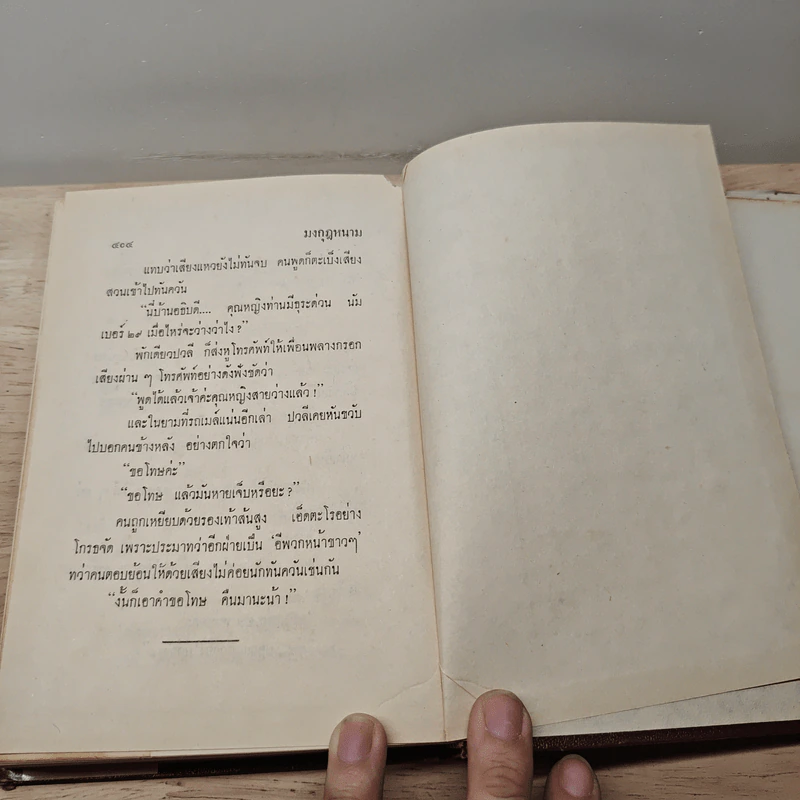 ๔๐๔ มงกุฎหนาม
แทบว่าเสียงแหวยังไม่ทันจบ คนพูดก็ตะเบ็งเสียง
สวนเข้าไปทันควัน
“นี่บ้านอธิบดี.... คุณหญิงท่านมีธุระด่วน นัม
เบอร์ ๒๙ เมื่อไหร่จะว่างว่าไง ?”
พักเดียวปวลี ก็ส่งหูโทรศัพท์ให้เพื่อนพลางกรอก
เสียงผ่าน ๆ โทรศัพท์อย่างดังฟังชัดว่า
“พูดได้แล้วเจ้าค่ะคุณหญิงสายว่างแล้ว !”
และในยามที่รถเมล์แน่นอีกเล่า ปวลีเคยหันขวับ
ไปบอกคนข้างหลัง อย่างตกใจว่า
“ขอโทษค่ะ”
“ขอโทษ แล้วมันหายเจ็บหรือยะ ?”
คนถูกเหยียบด้วยรองเท้าส้นสูง เอ็ดตะโรอย่าง
โกรธจัด เพราะประมาทว่าอีกฝ่ายเป็น ‘อีพวกหน้าขาวๆ’
ทว่าคนตอบย้อนให้ด้วยเสียงไม่ค่อยนักทันควันเช่นกัน
“งั้นก็เอาคำขอโทษ คืนมานะน้า !”